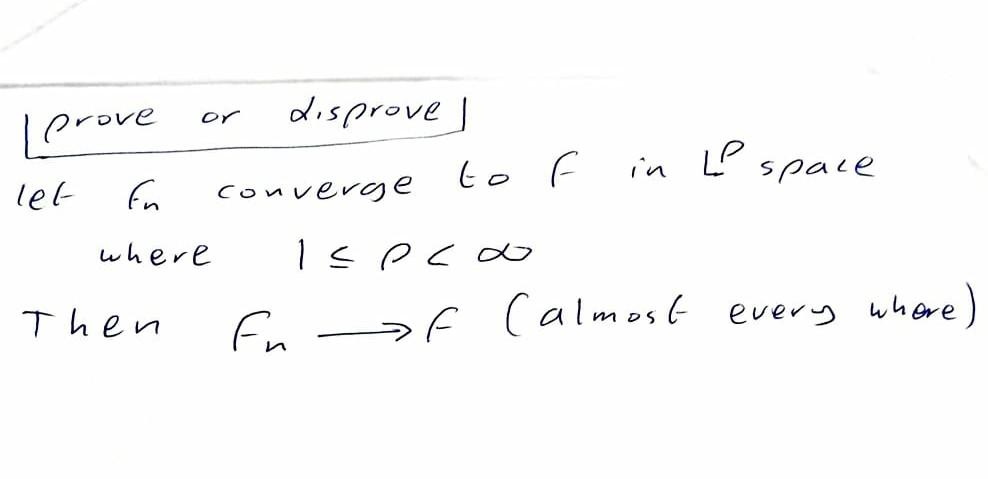 prove or disprove
let fn converge to f in L^p space
where 1 ≤ p < ∞
Then fn → f (almost every where)